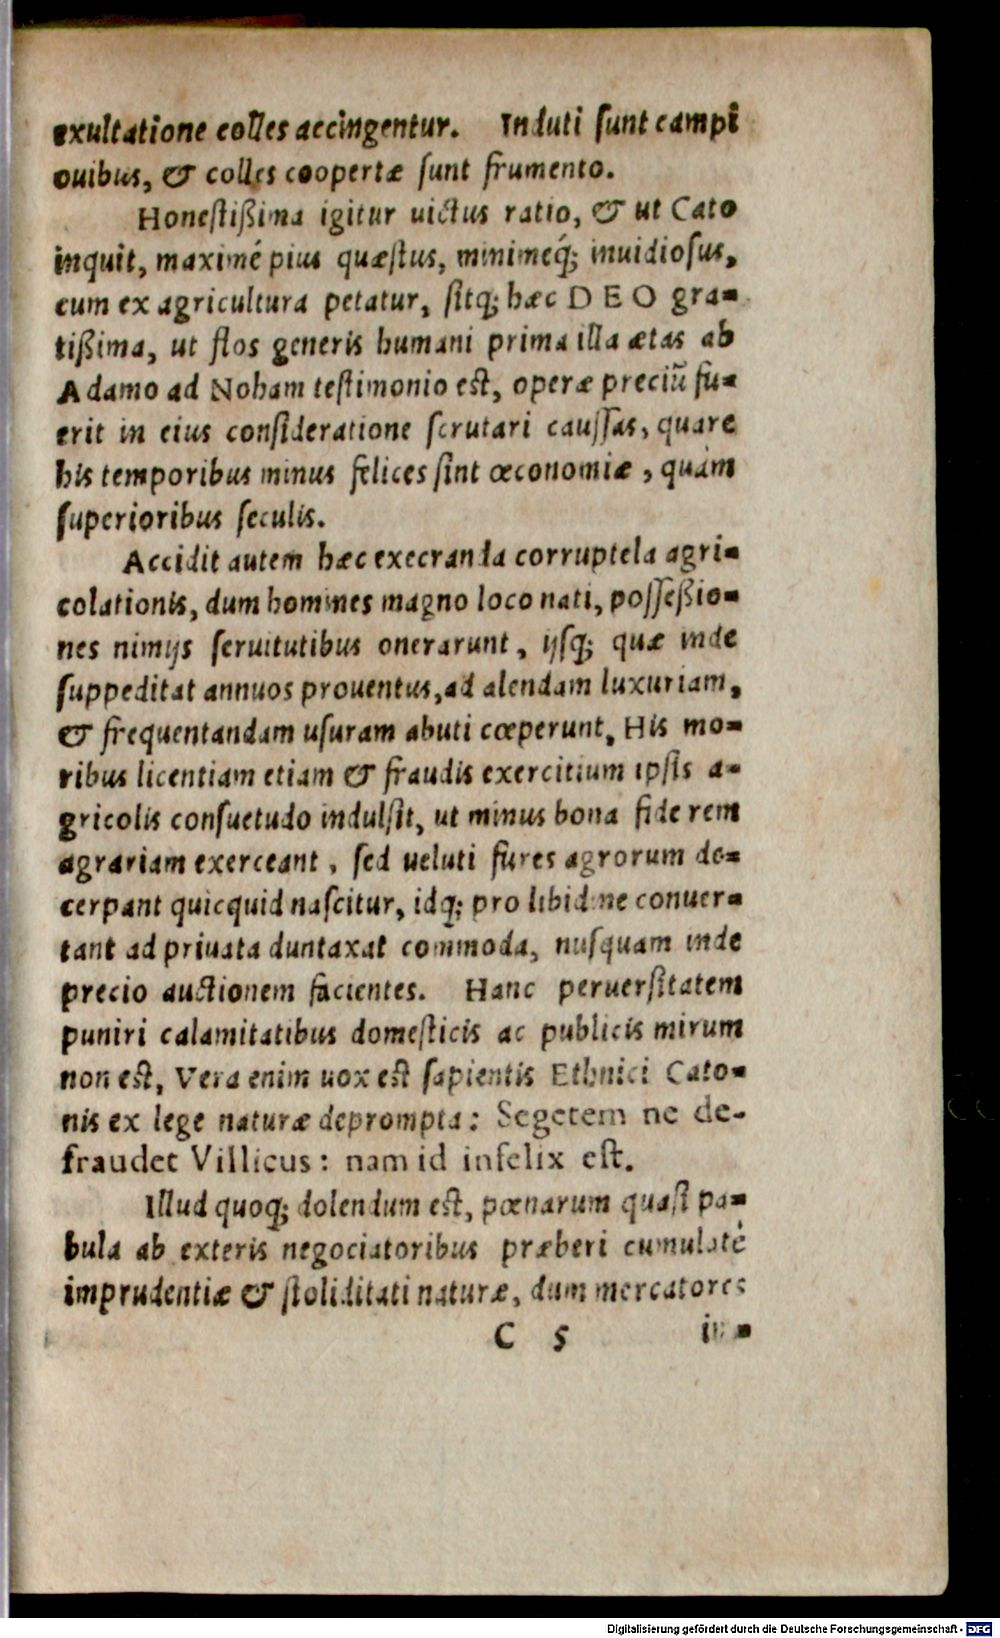 exultatione colles accingentur. Induti sunt campi
ouibus, & colles coopertæ sunt frumento.
Honestißima igitur uictus ratio, & ut Cato
inquit, maximé pius quæstus, minimeq́; inuidiosus,
cum ex agricultura petatur, sitq; hæc DEO gra-
tißima, ut flos generis humani prima illa ætas ab
Adamo ad Noham testimonio est, operæ preciũ fu-
erit in eius consideratione scrutari caussas, quare
his temporibus minus felices sint œconomiæ, quàm
superioribus seculis.
Accidit autem hæc execranda corruptela agri-
colationis, dum homines magno loco nati, possessio-
nes nimijs seruitutibus onerarunt, ijsq; quæ inde
suppeditat annuos prouentus, ad alendam luxuriam,
& frequentandam usuram abuti cœperunt. His mo-
ribus licentiam etiam & fraudis exercitium ipsis a-
gricolis consuetudo indulsit, ut minus bona fide rem
agrariam exerceant, sed ueluti fures agrorum de-
cerpant quicquid nascitur, idq; pro libidine conuer-
tant ad priuata duntaxat commoda, nusquam inde
precio auctionem facientes. Hanc peruersitatem
puniri calamitatibus domesticis ac publicis mirum
non est, Vera enim uox est sapientis Ethnici Cato-
nis ex lege naturæ deprompta: Segetem ne de-
fraudet Villicus: nam id infelix est.
Illud quoq; dolendum est, pœnarum quasi pa-
bula ab exteris negociatoribus præberi cumulatè
imprudentiæ & stoliditati naturæ, dum mercatores
C 5 in-
Digitalisierung gefördert durch die Deutsche Forschungsgemeinschaft - DFG